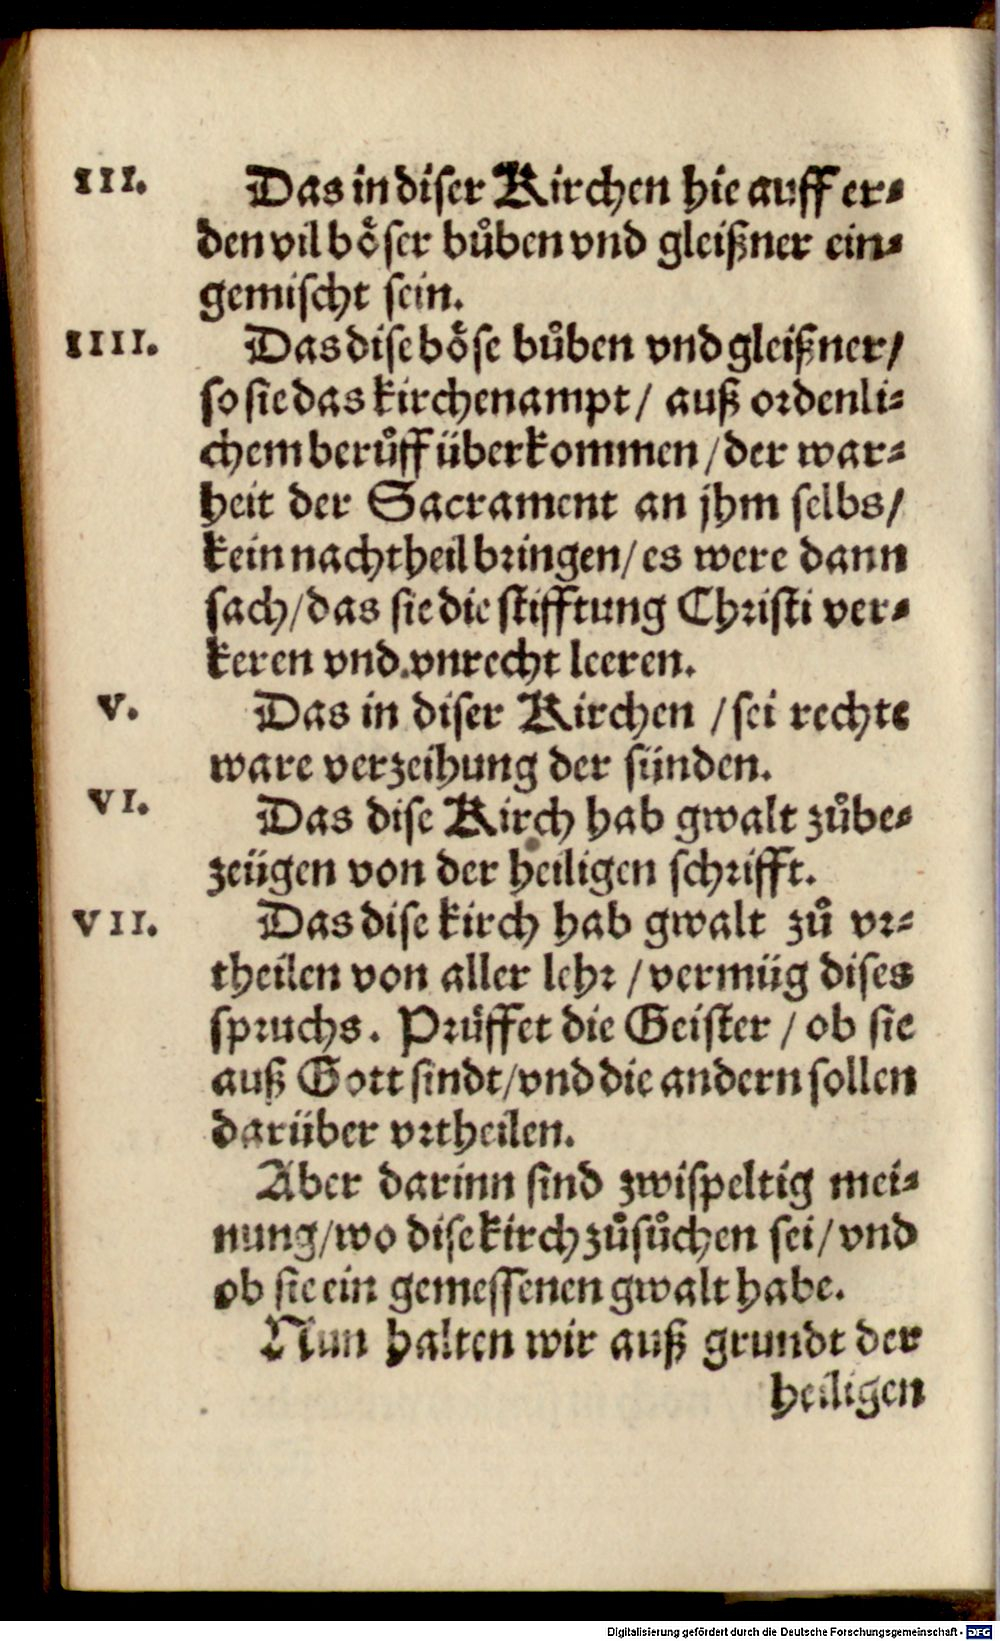 III. Das in diser Kirchen hie auff er⸗
den vil boͤser buͦben vnd gleißner ein⸗
gemischt sein.
IIII. Das dise boͤse buͦben vnd gleißner/
so sie das kirchenampt/ auß ordenli⸗
chem beruͦff überkommen/der war⸗
heit der Sacrament an jhm selbs/
kein nachtheil bringen/es were dann
sach/das sie die stifftung Christi ver⸗
keren vnd vnrecht leeren.
V. Das in diser Kirchen /sei rechte
ware verzeihung der sünden.
VI. Das dise Kirch hab gwalt zuͦbe⸗
zeügen von der heiligen schrifft.
VII. Das dise kirch hab gwalt zuͦ vr⸗
theilen von aller lehr /vermüg dises
spruchs. Prüffet die Geister / ob sie
auß Gott sindt/vnd die andern sollen
darüber vrtheilen.
Aber darinn sind zwispeltig mei⸗
nung/wo dise kirch zuͦsuͦchen sei/vnd
ob sie ein gemessenen gwalt habe.
Nun halten wir auß grundt der
heiligen
Digitalisierung gefördert durch die Deutsche Forschungsgemeinschaft - DFG